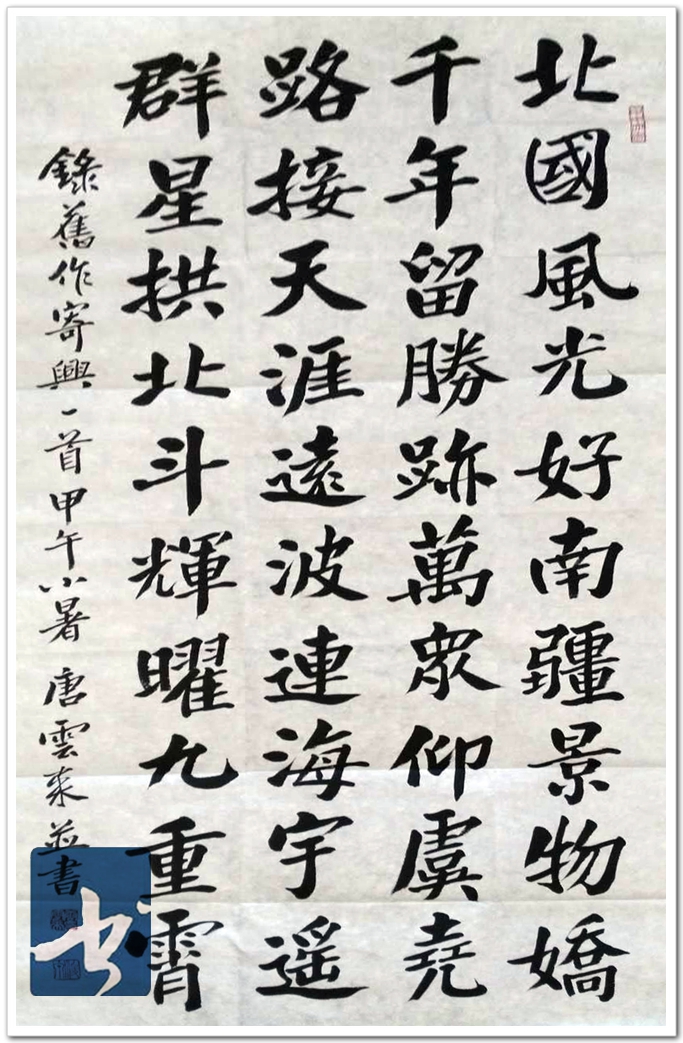 北國風光好南疆景物嬌
千年留勝跡萬眾仰虞堯
路接天涯遠波連海宇遥
群星拱北斗輝曜九重霄
錄舊作寄興一首甲午小暑唐雲來並書
书